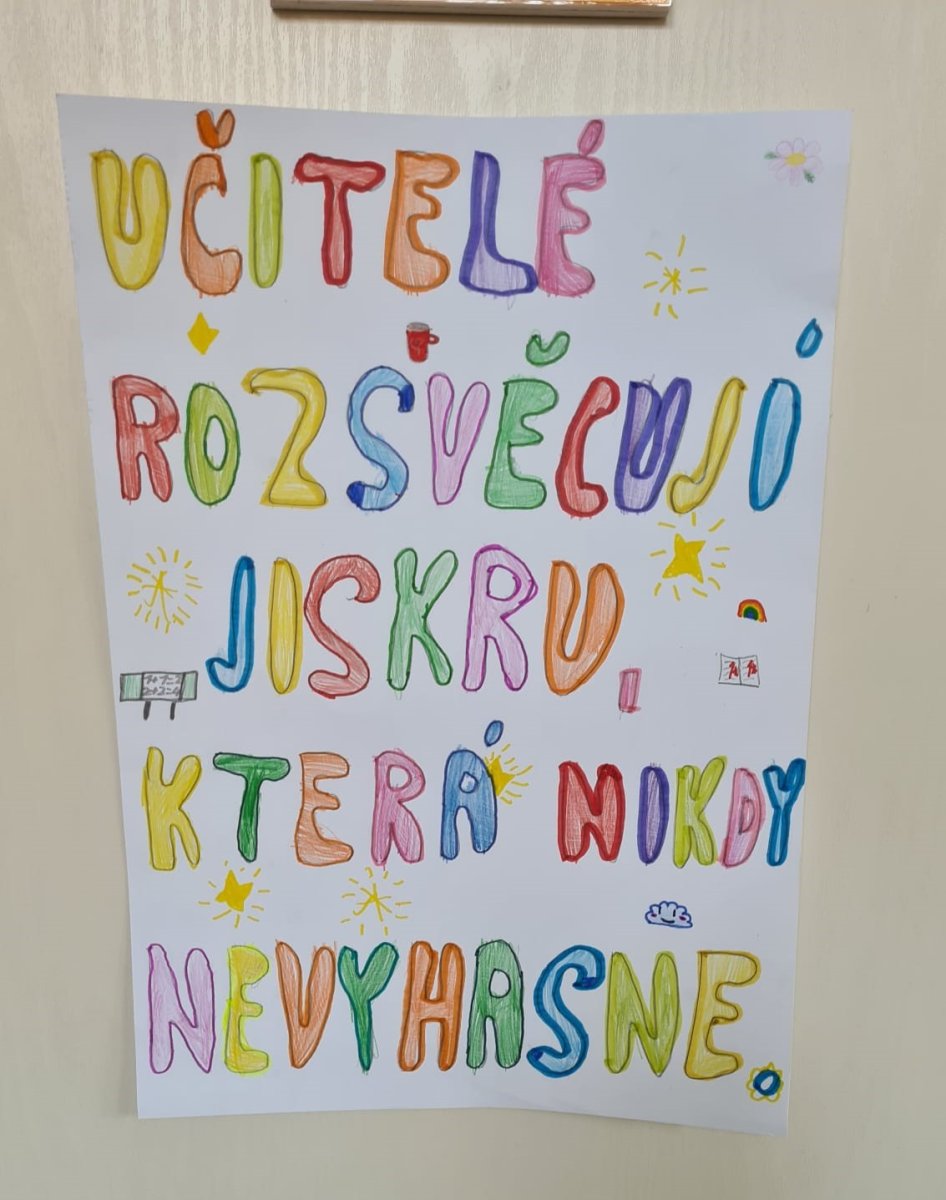 UČITELÉ
ROZSVĚCUJÍ
JISKRU,
KTERÁ NIKDY
NEVYHASNE.